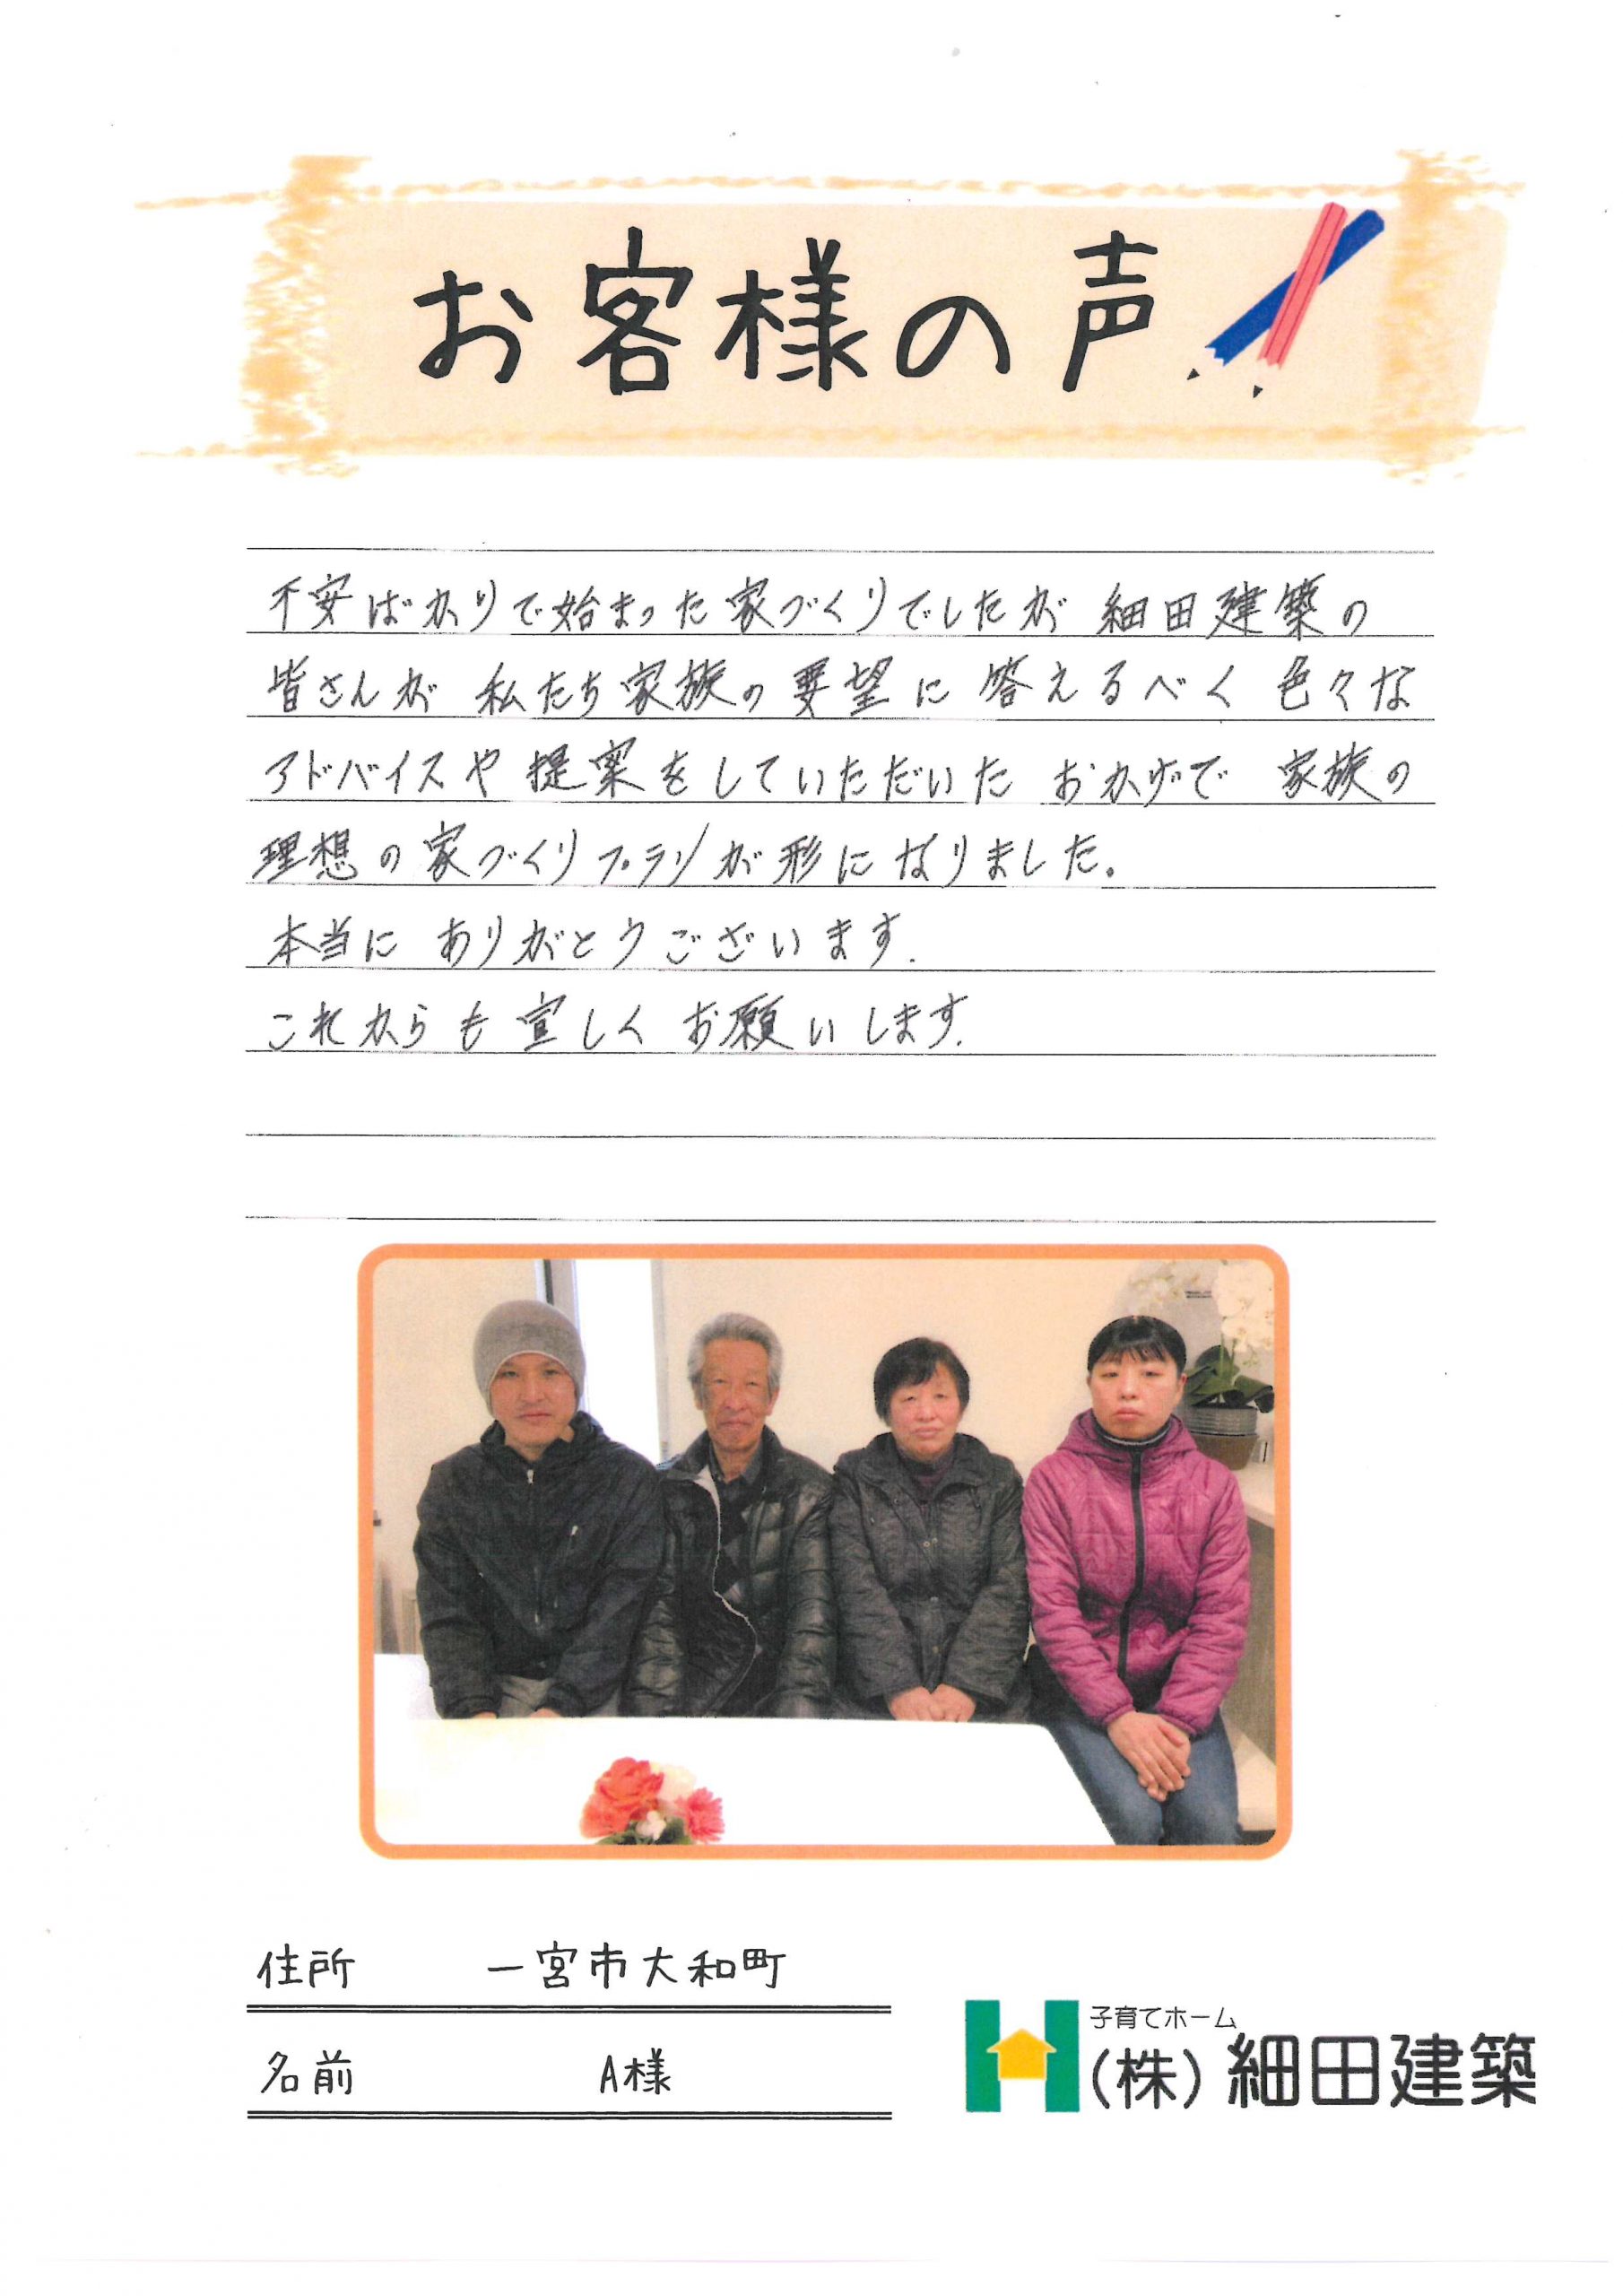 お客様の声
不安ばかりで始まった家づくりでしたが 細田建築の
皆さんが 私たち家族の要望に 答えるべく 色々な
アドバイスや提案をしていただいた おかげで 家族の
理想の家づくりプランが形になりました。
本当に ありがとうございます.
これからも宜しく お願いします.
住所 一宮市大和町
名前 A様
子育てホーム
(株)細田建築